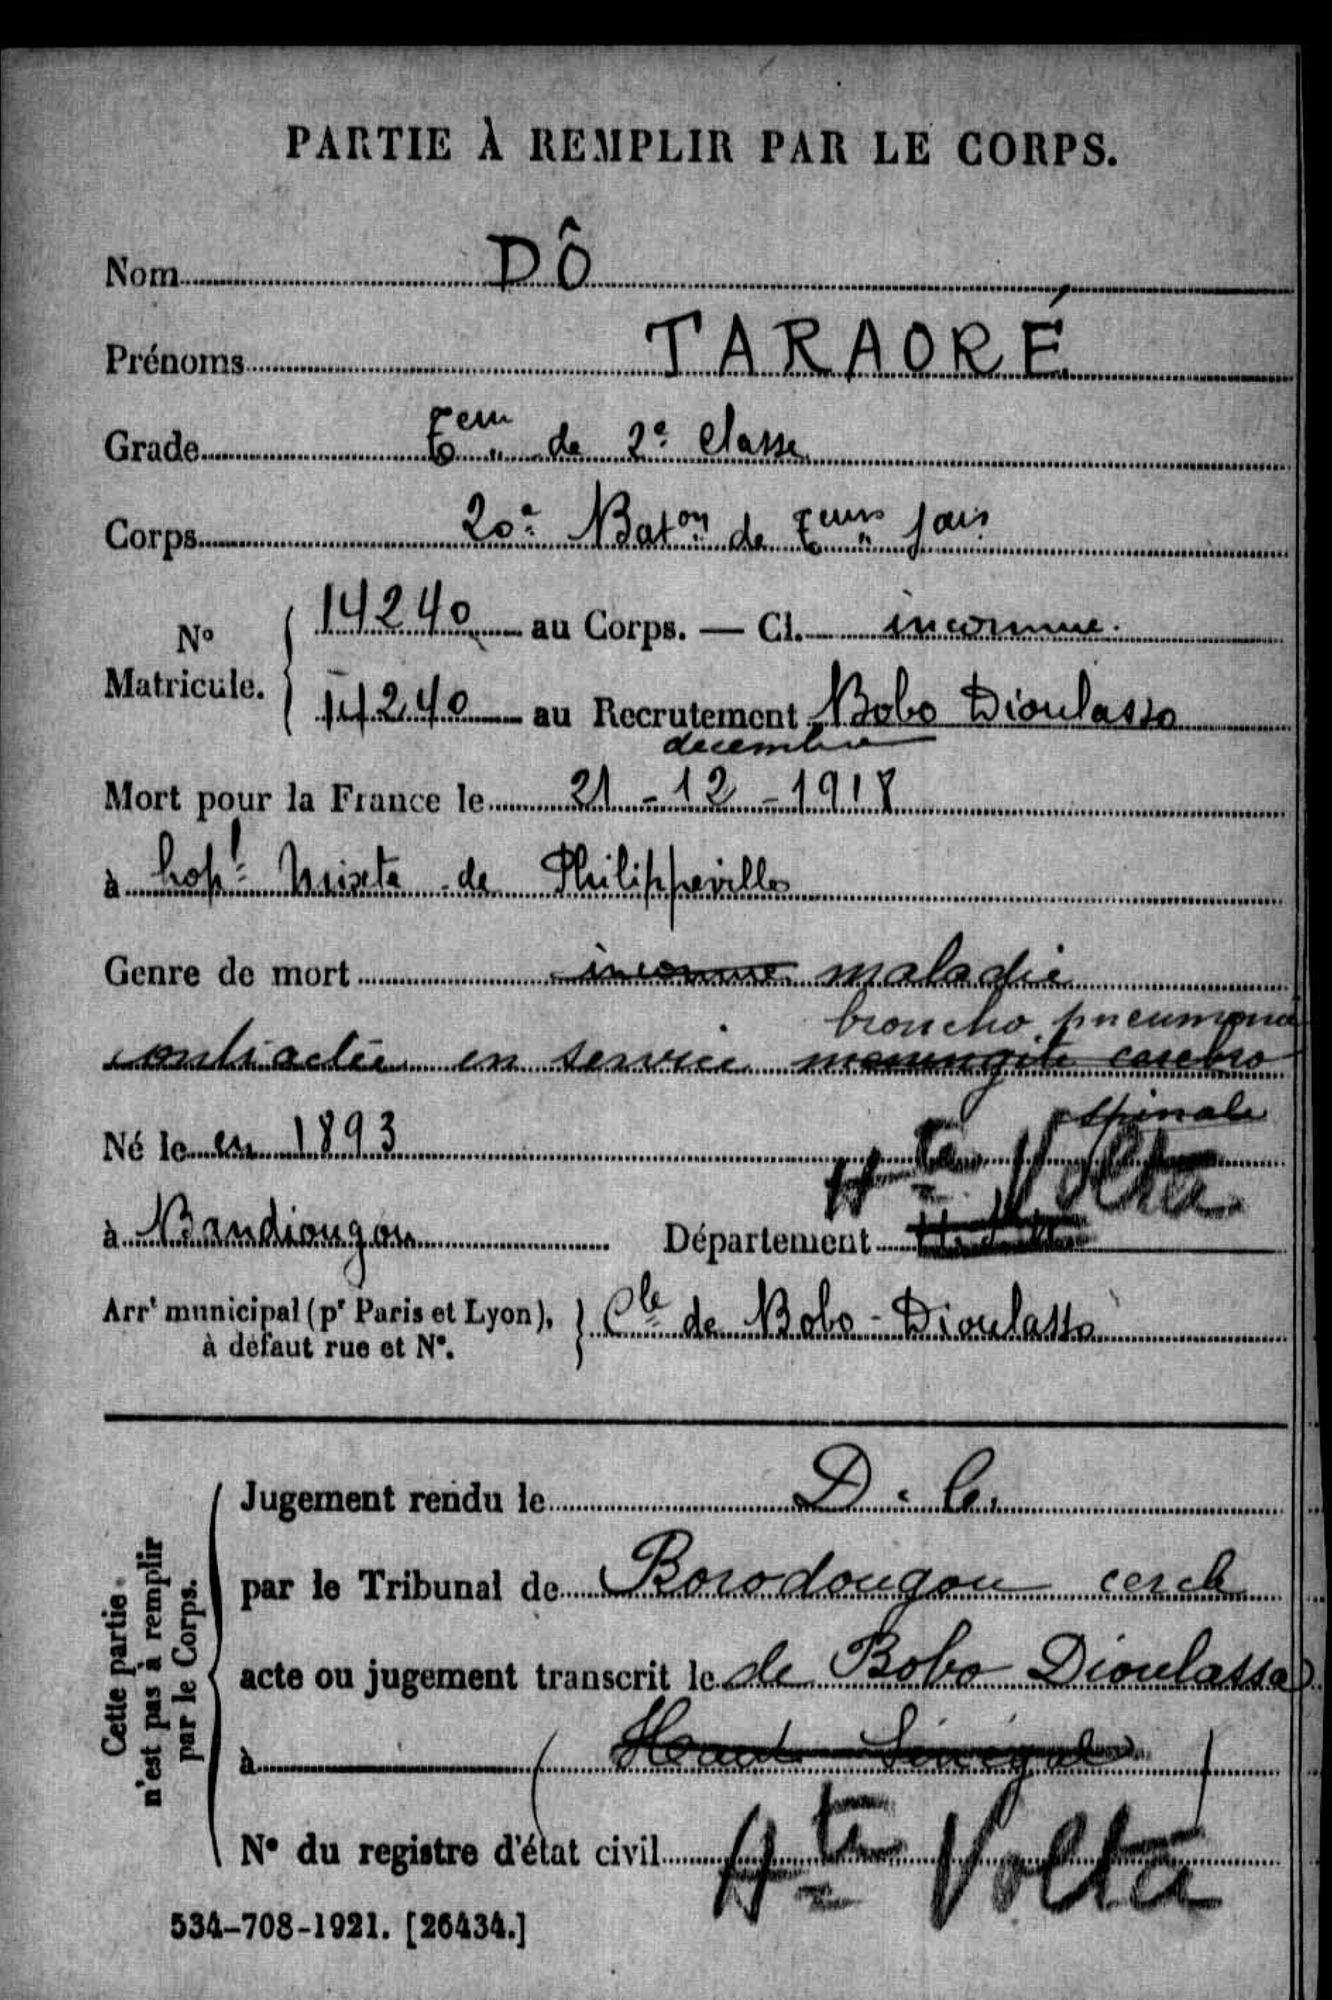 PARTIE À REMPLIR PAR LE CORPS.
Nom DÔ
Prénoms TARAORÉ
Grade Teur de 2e Classe
Corps 20e Baton de Teurs Sais
N° Matricule. 14240 au Corps. — Cl. inconnue.
14240 au Recrutement Bobo Dioulasso
decembre
Mort pour la France le 21-12-1918
à hopl mixte de Philippeville
Genre de mort inconnue maladie
broncho pneumonie
contractée en service meningite cerebro
spinale
Né le en 1893
Hte Volta
à Bandiougou Département
Arrt municipal (pr Paris et Lyon), à défaut rue et N°. Cle de Bobo-Dioulasso
Cette partie n'est pas à remplir par le Corps.
Jugement rendu le D. C.
par le Tribunal de Borodougou cercle
acte ou jugement transcrit le de Bobo Dioulasso
à (Haut Sénégal)
N° du registre d'état civil Hte Volta
534-708-1921. [26434.]